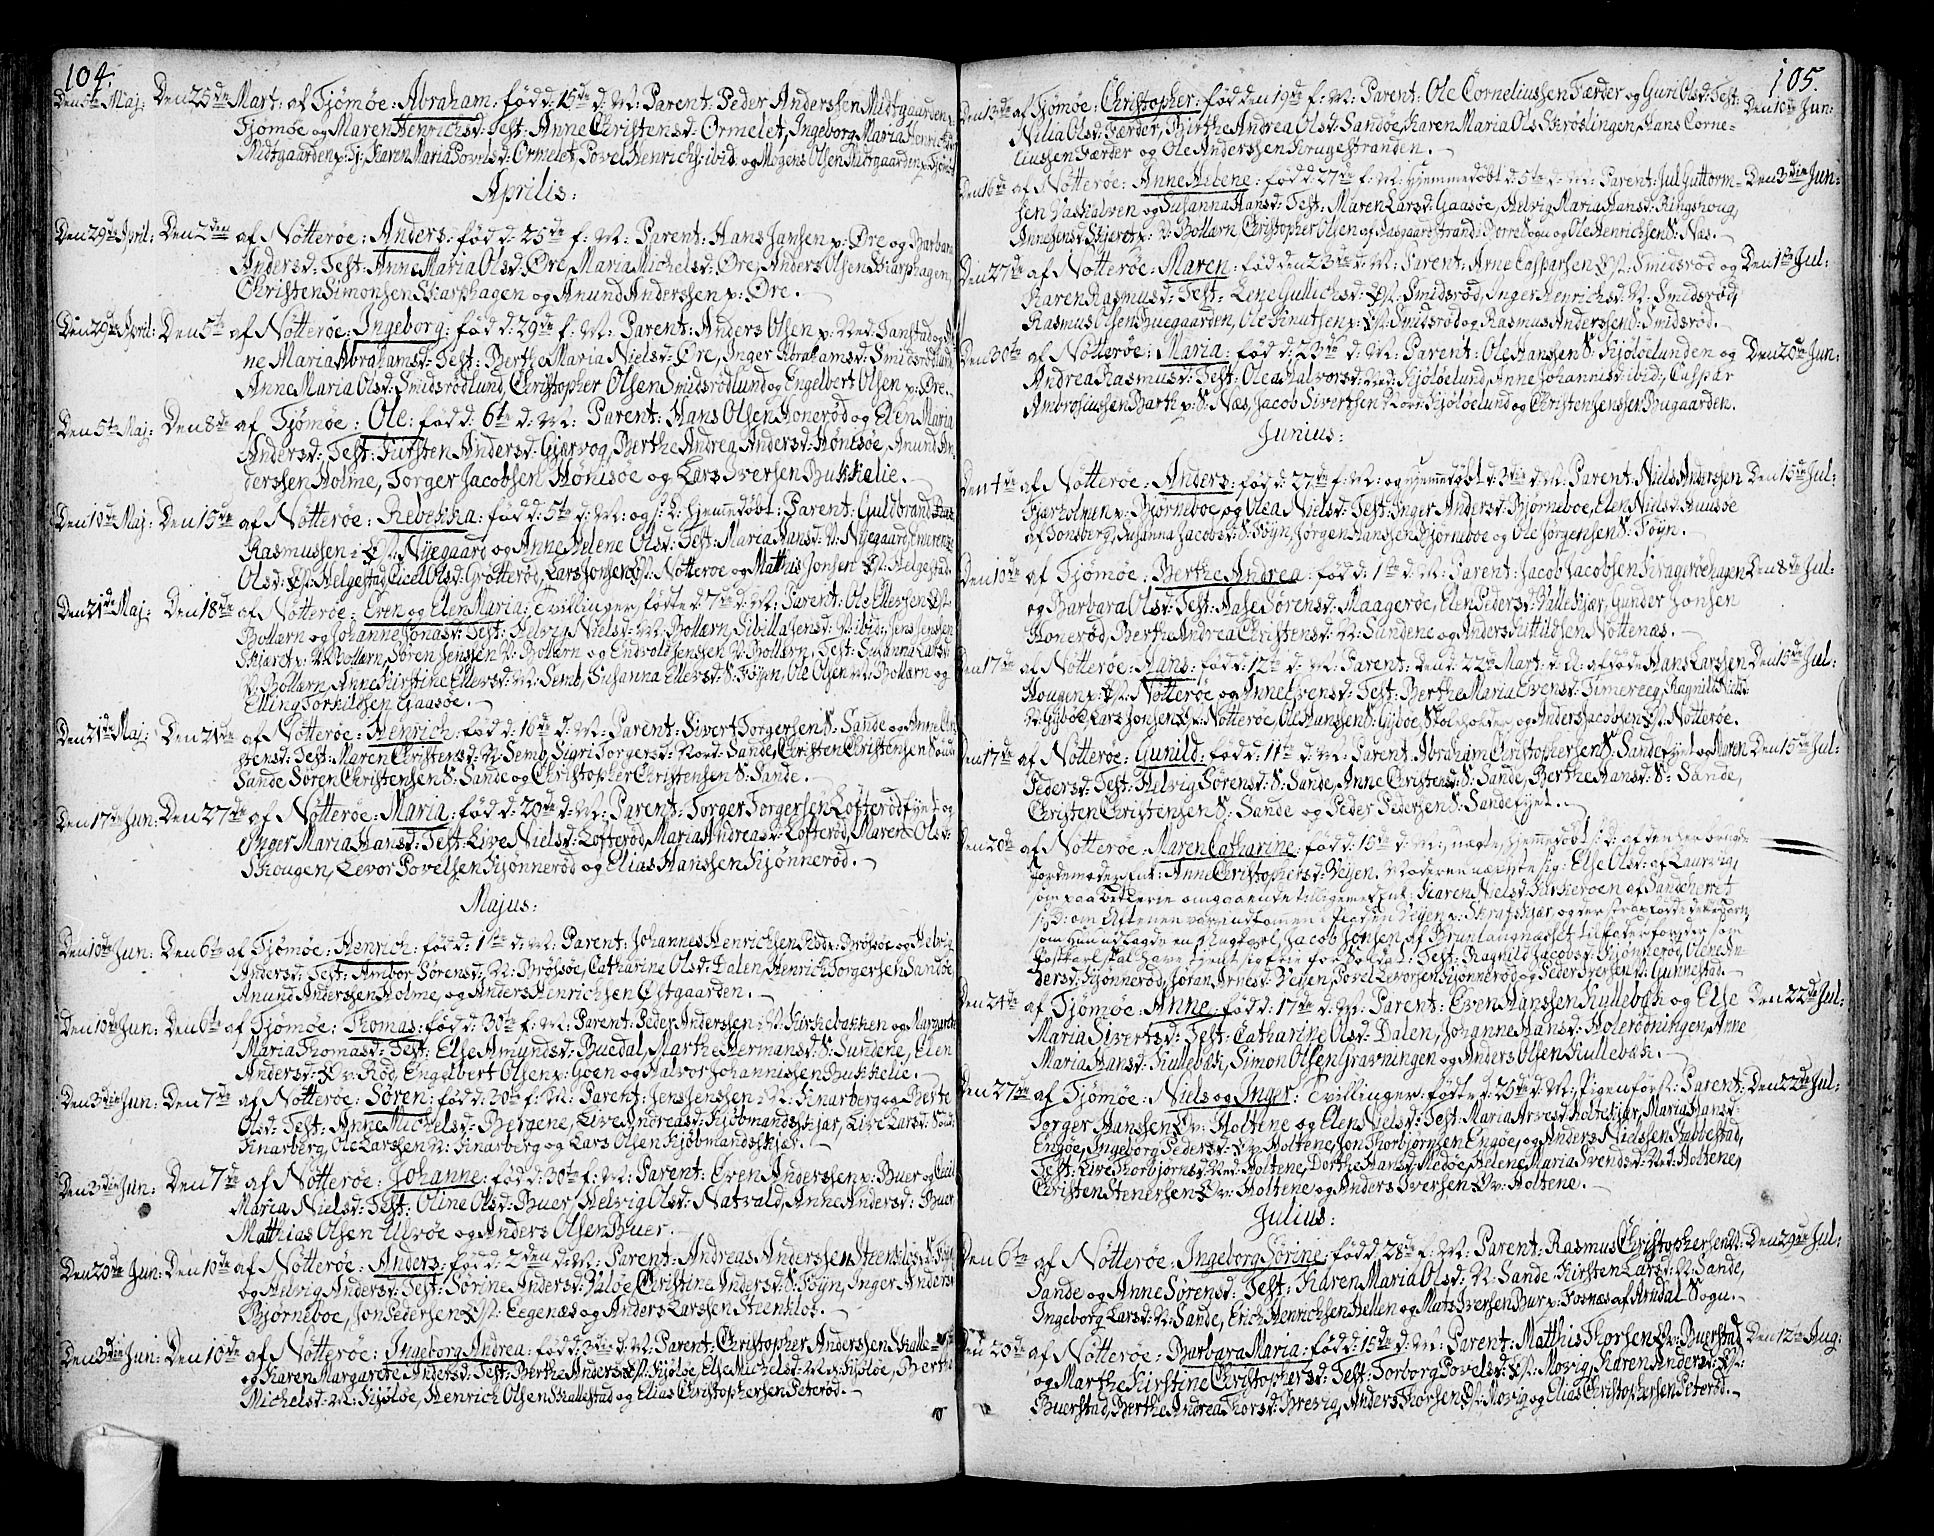 104.
Den 5te Maj: Den 25de Mart: af Tjömöe: Abraham: född: 15de d: M: Parent: Peder Anderssen Midtgaarden p:
Tjömöe og Maren Henrichsd: Test: Anne Christensd: Ormelet, Ingeborg Maria Henrichsd:
Midtgaarden p: Tj: Karen Maria Povelsd: Ormelet, Povel Henrichs: ibid: og Mogens Olsen Midtgaarden p: Tjöm:
Aprilis:
Den 29de April: Den 2den af Nötteröe: Anders: född: 25de f: M: Parent: Hans Jansen p: Öre og Barbara
Andersd: Test: Anne Maria Olsd: Öre, Maria Michelsd: Öre, Anders Olsen Skarphagen,
Christen Simonsen Skarphagen og Anund Anderssen p: Öre.
Den 29de April: Den 5te af Nötteröe: Ingeborg: född: 29de f: M: Parent: Anders Olsen p: Ned: Tanstad og An-
ne Maria Abrahamsd: Test: Berthe Maria Nielsd: Öre, Inger Abrahamsd: Smidsrödlund,
Anne Maria Olsd: Smidsrödlund, Christopher Olsen Smidsrödlund og Engelbert Olsen p: Öre.
Den 5te Maj: Den 8de af Tjömöe: Ole: född: 6te d: M: Parent: Hans Olsen Honeröd og Elen Maria
Andersd: Test: Kirsten Andersd: Gjervog, Berthe Andrea Andersd: Hönisöe, Anund An-
derssen Holme, Torger Jacobsen Hönisöe og Lars Iversen Bukkelie.
Den 10de Maj: Den 15de af Nötteröe: Rebekka: född: 5te d: M: og s: D: Hjemmedöbt: Parent: Guldbrand
Rasmussen i Öst: Nyegaard og Anne Helene Olsd: Test: Maria Hansd: V: Nyegaard, Emerenze
Olsd: Öst: Helgestad, Cicel Olsd: Grötteröd, Lars Jonsen Öst: Nötteröe og Mathis Jonsen Öst: Helgestad.
Den 21de Maj: Den 18de af Nötteröe: Even og Elen Maria: Tvillinger, födte d: 7de d: M: Parent: Ole Ellevsen Öst:
Bollærn og Johanne Jonasd: Test: Helvig Nielsd: M: Bollærn, Sibilla Jensd: V: ibid: Jens Jenssen
Skjæret p: V: Bollærn, Sören Jenssen V: Bollærn og Endvold Jenssen V: Bollærn, Test: Susanna Larsd:
V: Bollærn, Anne Kirstine Ellevsd: N: Semb, Susanna Ellevsd: S: Föyen, Ole Olsen M: Bollærn og
Elling Torkildsen Gaasöe.
Den 21de Maj: Den 21de af Nötteröe: Henrich: född: 16de d: M: Parent: Sivert Torgersen S: Sande og Anne Chri-
stensd: Test: Maren Christensd: N: Semb, Sigri Torgersd: Nord: Sande, Christen Christensen Sönd:
Sande, Sören Christensen S: Sande og Christopher Christensen S: Sande.
Den 17de Jun: Den 27de af Nötteröe: Maria: född: 20de d: M: Parent: Torger Torgersen Lofteröd fynt og
Inger Maria Hansd: Test: Live Nielsd: Lofteröd, Maria Andreasd: Lofteröd, Maren Olsd:
Skougen, Levor Povelsen Kjönneröd og Elias Hanssen Kjönneröd.
Majus:
Den 10de Jun: Den 6te af Tjömöe: Henrich: född: 1ste d: M: Parent: Johannes Henrichsen Röde: Brösöe og Helvig
Andersd: Test: Ambor Sörensd: N: Brösöe, Catharine Olsd: Dalen, Henrich Torgersen Sandöe,
Anund Anderssen Holme, og Anders Henrichsen Östgaarden.
Den 10de Jun: Den 6te af Tjömöe: Thomas: född: 30te f: M: Parent: Peder Anderssen i N: Kirkebakken og Margarete
Maria Thomasd: Test: Else Amundsd: Buedal, Marthe Hermansd: S: Sundene, Elen
Andersd: Öv: Röd, Engelbert Olsen p: Goen og Halvor Johannissen Bukkelie.
Den 3die Jun: Den 7de af Nötteröe: Sören: född: 30te f: M: Parent: Jens Jenssen i N: Knarberg og Berte
Olsd: Test: Anne Michelsd: Bergene, Live Andreasd: Kjöbmandsskjær, Live Larsd: Sönd:
Knarberg, Ole Larssen N: Knarberg og Lars Olsen Kjöbmandsskjær.
Den 3die Jun: Den 7de af Nötteröe: Johanne: född: 30te f: M: Parent: Even Anderssen p: Buer og Cecil
Maria Nielsd: Test: Oline Olsd: Buer, Helvig Olsd: Natvald, Anne Andersd: Buer
Matthias Olsen Ulvöe og Anders Olsen Buer.
Den 20de Jun: Den 10de af Nötteröe: Anders: född: 2den d: M: Parent: Andreas Anderssen Steenklös S: Föyn
og Helvig Andersd: Test: Sörine Andersd: Valöe, Christine Andersd: S: Föyn, Inger Andersd:
Björneboe, Jon Pedersen Öst: Eegenæs og Anders Larssen Steenklos.
Den 3die Jun: Den 10de af Nötteröe: Ingeborg Andrea: född: 3die d: M: Parent: Christopher Anderssen Skalle-
og Karen Margarete Andersd: Test: Berthe Andersd: Öst: Kjölöe, Else Michelsd: N: Kjölöe, Berthe
Michelsd: N: Kjölöe, Henrich Olsen Skallestad og Elias Christophersen Peteröd.
105.
Den 13de af Tjömöe: Christopher: föd den 19de f: M: Parent: Ole Corneliussen Færder og Guri Olsd: Test: Den 10de Jun:
Nilia Olsd: Færder, Birthe Andrea Olsd: Sandöe, Karen Maria Ols Kröslingen, Hans Corne-
liussen Færder og Ole Anderssen Krugestranden.
Den 16de af Nötteröe: Anne Helene: född: 27de f: M: Hjemmedöbt d: 5te d: M: Parent: Jul Guttorm- Den 3die Jun:
sen Vaskalven og Susanna Hansd: Test: Maren Larsd: Gaasöe, Helvig Maria Hansd: Ringshoug,
Anne Jensd: Skjæret p: V: Bollærn, Christopher Olsen af Aasgaardstrand i Borre Sogn og Ole Henrichsen S: Næs.
Den 27de af Nötteröe: Maren: föd den 23de d: M: Parent: Arne Casparsen Öst: Smidsröd og Den 1ste Jul:
Karen Rasmusd: Test: Lene Gullichsd: Öst: Smidsröd, Inger Henrichsd: N: Smidsröd,
Rasmus Olsen Buegaarden, Ole Knutsen p: Öst: Smidsröd og Rasmus Anderssen S: Smidsröd.
Den 30te af Nötteröe: Maria: född: 23de d: M: Parent: Ole Hanssen S: Kjölöelunden og Den 20de Jun:
Andrea Rasmusd: Test: Olea Halvorsd: Ned: Kjölöelund, Anne Johannisd: ibid:, Caspar
Ambrosiussen Barth p: S: Næs, Jacob Sivertsen Nord: Kjölöelund og Christen Jenssen Bugaarden.
Junius:
Den 4de af Nötteröe: Anders: född: 27de f: M: og Hjemmedöbt d: 3die d: M: Parent: Niels Anderssen Den 15de Jul:
Fjærholmen p: Björneboe og Olea Nielsd: Test: Inger Andersd: Björneboe, Elen Nielsd: Huusöe
af Tönsberg, Susanna Jacobsd: S: Föyn, Jörgen Hanssen Björneboe og Ole Jörgensen S: Föyn.
Den 10de af Tjömöe: Berthe Andrea: född: 1ste d: M: Parent: Jacob Jacobsen Krageröehagen Den 8de Jul:
og Barbara Olsd: Test: Aase Sörensd: Maageröe, Elen Pedersd: Valleskjær, Gunder Jonsen
Honeröd, Berthe Andrea Christensd: N: Sundene og Anders Kittildsen Nöttenæs.
Den 17de af Nötteröe: Hans: född: 12te d: M: Parent: Den d: 22de Mart: d: A: afdöde Hans Larssen Den 15de Jul:
Hougen p: Öst: Nötteröe og Anne Evensd: Test: Berthe Maria Evensd: Timereeg, Ragnild Nielsd:
V: Gyböe, Lars Jonsen Öst: Nötteröe, Ole Hanssen S: Gyböe Skoleholder, og Anders Jacobsen Öst: Nötteröe.
Den 17de af Nötteröe: Gunild: född: 11te d: M: Parent: Abraham Christophersen S: Sande fynt og Maren Den 15de Jul:
Pedersd: Test: Helvig Sörensd: S: Sande, Anne Christensd: S: Sande, Berthe Hansd: S: Sande,
Christen Christensen S: Sande og Peder Pedersen S: Sande fynt.
Den 20de af Nötteröe: Maren Catharine: född: 15de d: M:, uægte, hjemmedöbt s: D: af den
Jordemoder Ent: Anne Christophersd: Vejen. Moderen nævnte sig: Else Olsd: af Laurvig,
som paa Betlerie omgaaende tilligemed Ent: Karen Nielsd: Kirkeröen af Sandeherret
s: D: om Aftenen var indkommen i Pladsen Vejen p: Skrafskjær, og der strax födde dette Barn
som hun udlagde en Ungkarl, Jacob Jonsen af Brunlangnæsset til fader for, der som
Postkarl skal have tjent og frie for Soldat: Test: Ragnild Jacobsd: Kjönneröd, Olene An-
dersd: Kjönneröd, Jöran Arnesd: Vejen, Povel Levorsen Kjönneröd og Peder Iversen V: Gunnestad.
Den 24de af Tjömöe: Anne: född: 17de d: M: Parent: Even Hanssen Kullebak og Else Den 22de Jul:
Maria Sivertsd: Test: Catharine Olsd: Dalen, Johanne Hansd: Holerödningen, Anne
Maria Hansd: Kullebak, Simon Olsen Gravningen og Anders Olsen Kullebak.
Den 27de af Tjömöe: Niels og Inger: Tvillinger, födte d: 25de d: M: Pigen först: Parent: Den 22de Jul:
Torger Hanssen Öv: Holtene og Elen Nielsd: Test: Maria Arvesd: Holteskjær, Maria Hansd:
Engöe, Ingeborg Pedersd: Öv: Holtene, Jon Thorbjörnsen Engöe, og Anders Nielssen Stabbestad,
Test: Live Thorbjörnsd: Ned: Holtene, Dorthe Hansd: Medöe, Helene Maria Svendsd: Ned: Holtene,
Christen Stenersen Öv: Holtene og Anders Iversen Öv: Holtene.
Julius:
Den 6te af Nötteröe: Ingeborg Sörine: född: 28de f: M: Parent: Rasmus Christophersen N: Den 29de Jul:
Sande og Anne Sörensd: Test: Karen Maria Olsd: N: Sande, Kirsten Larsd: N: Sande,
Ingeborg Larsd: N: Sande, Erich Henrichsen Hellen og Mats Iversen Bur p: Fosnæs af Arndal Sogn.
Den 20de af Nötteröe: Barbara Maria: född: 15de d: M: Parent: Matthis Thorsen Öv: Buerstad Den 12te Aug:
og Marthe Kirstine Christophersd: Test: Torborg Povelsd: Öst: Movig, Karen Andersd: Öst:
Buerstad, Berthe Andrea Thorsd: Brevig, Anders Thorsen Öst: Movig og Elias Christophersen Peteröd.